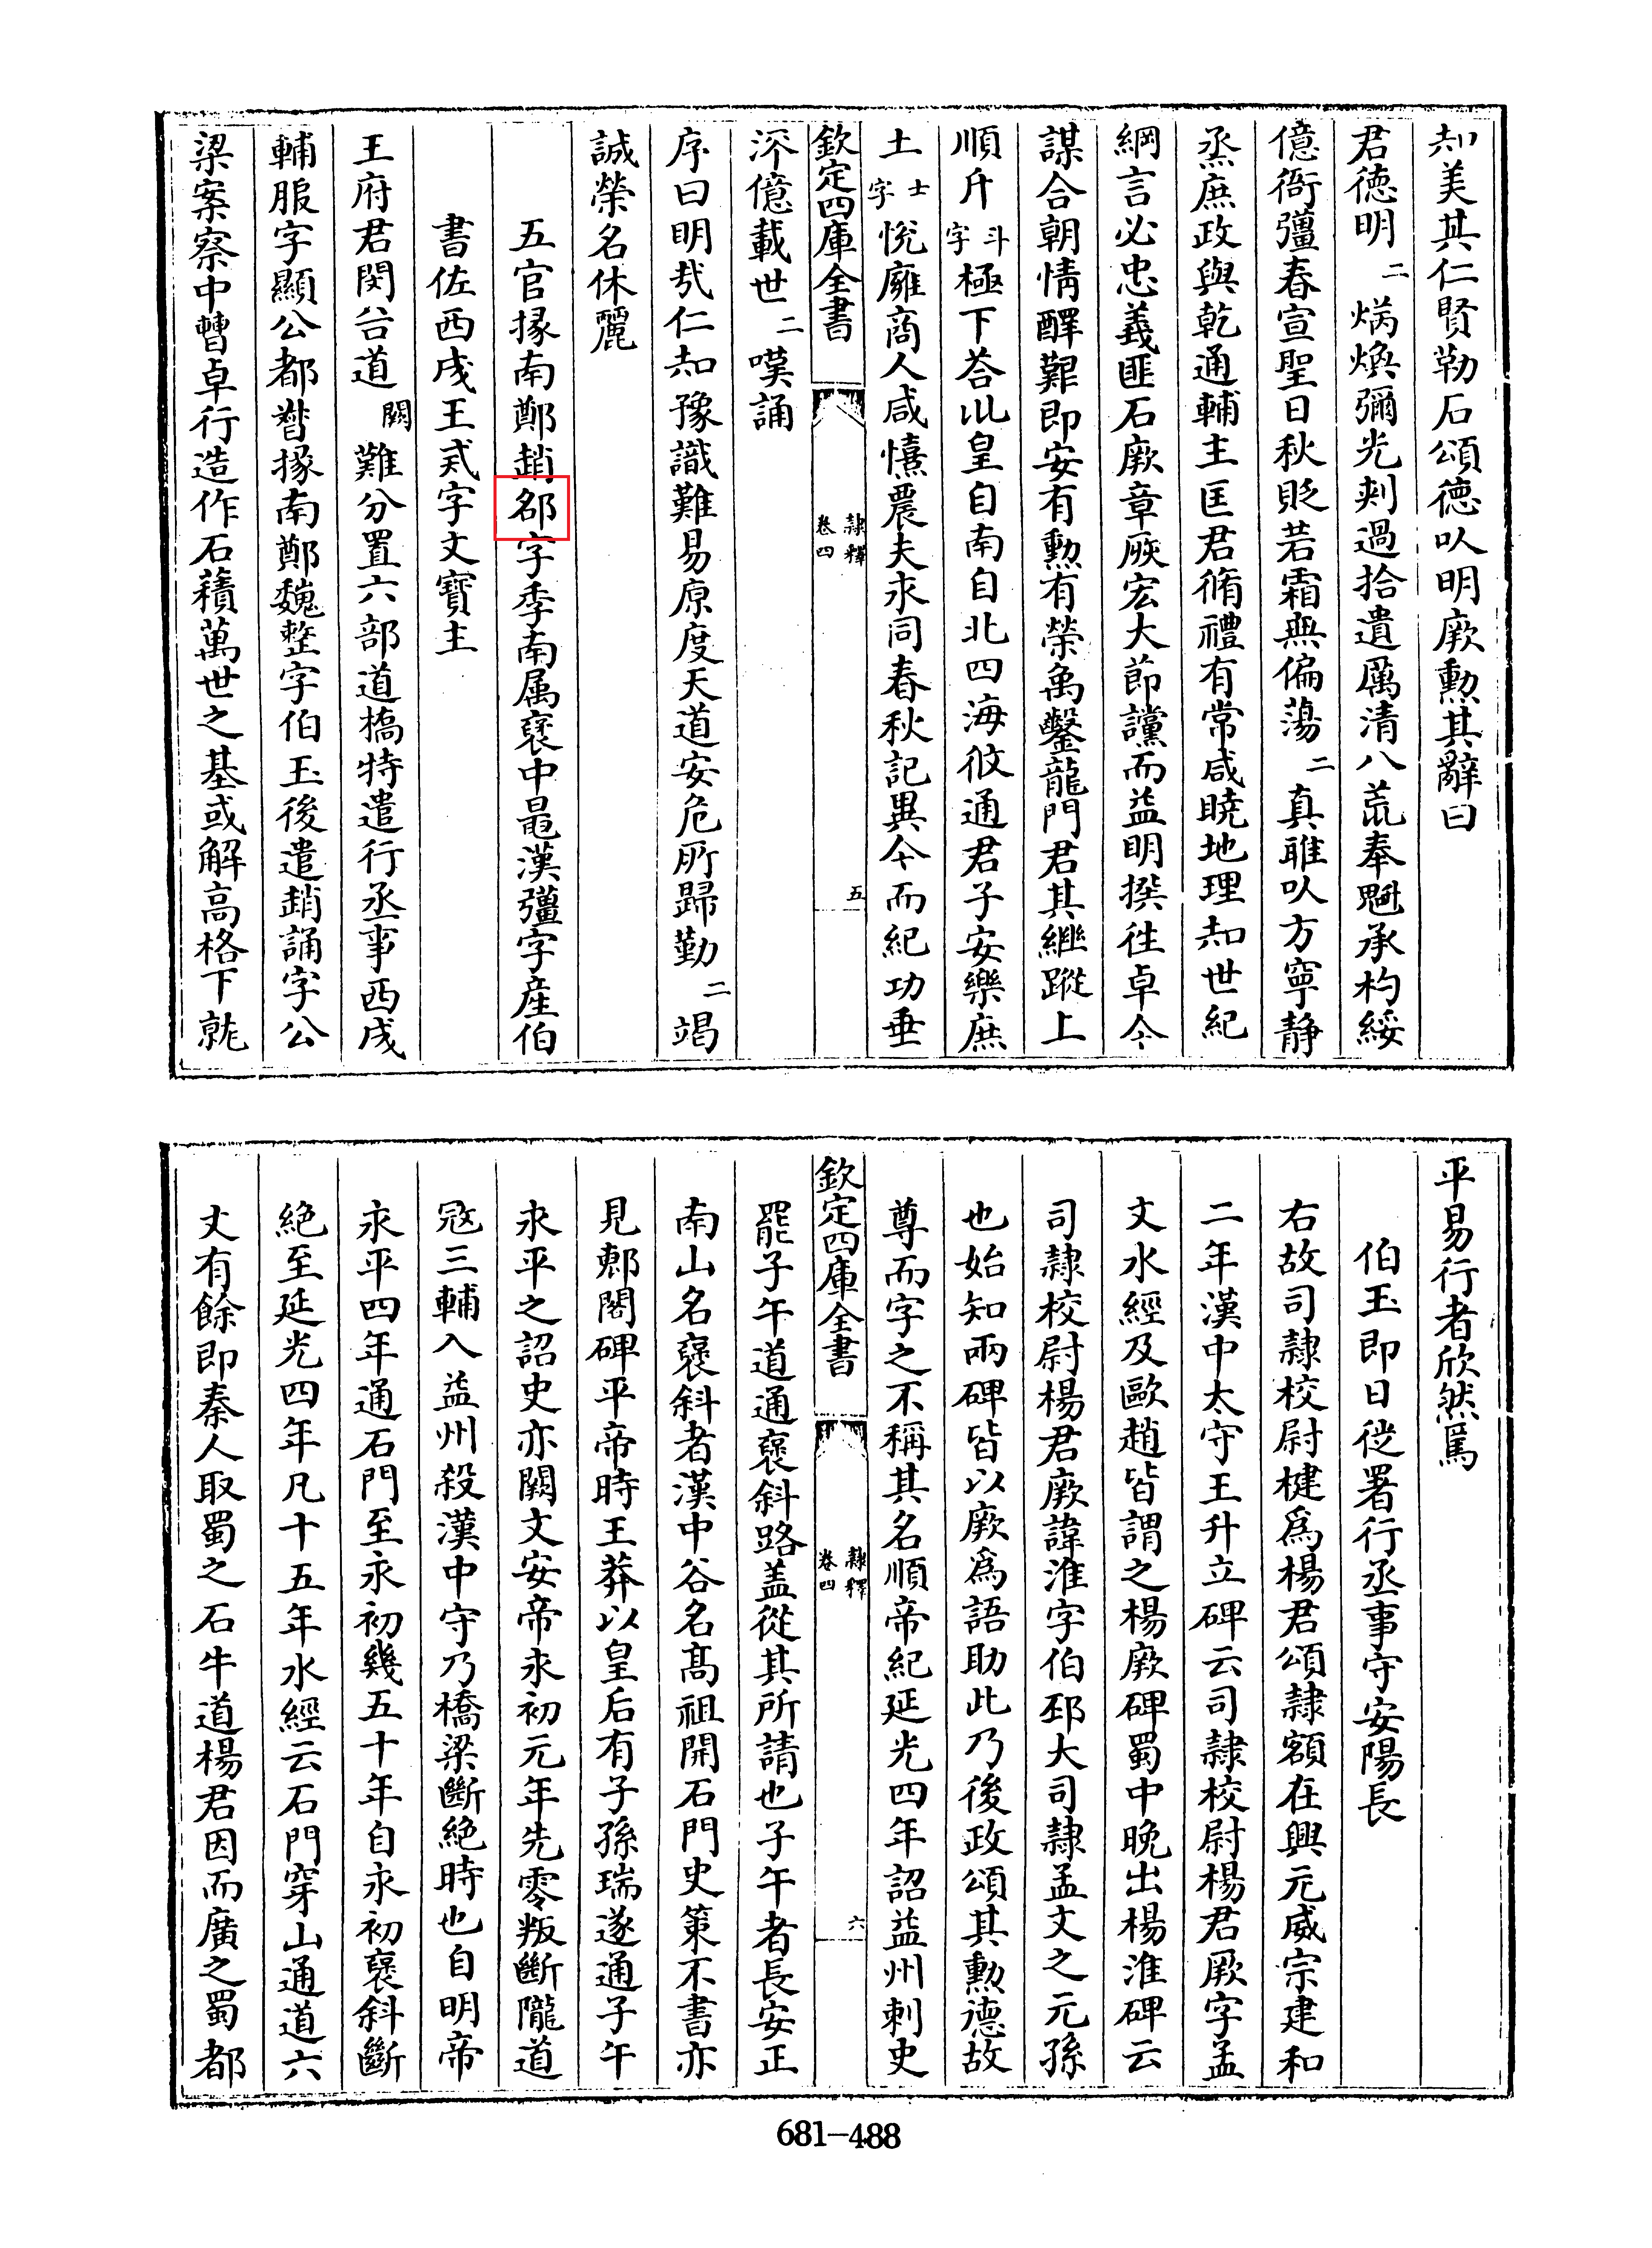 知美其仁賢勒石頌德以明厥勲其辭曰
君德明二㶽煥彌光刾過拾遺厲清八荒奉魁承杓綏
億衙彊春宣聖日秋貶若霜無偏蕩二真雖以方寧靜
烝庶政與乾通輔主匡君脩禮有常咸曉地理知世紀
綱言必忠義匪石厥章厥宏大節讜而益明撰往卓今
謀合朝情醳艱即安有勲有榮禹鑿龍門君其繼蹤上
順斗斗字極下荅坤皇自南自北四海攸通君子安樂庶
土士字悅廱商人咸憘農夫永同春秋記異今而紀功垂
欽定四庫全書
隷釋
卷四
五
深億載世二嘆誦
序曰明㢤仁知豫識難易原度天道安危所歸勤二竭
誠榮名休麗
五官掾南鄭趙郘字季南属褒中鼂漢彊字産伯
書佐西戍王戒字文寶主
王府君閔谷道闕難分置六部道橋特遣行丞事西戍
輔服字顯公都督掾南鄭魏整字伯玉後遣趙誦字公
梁案察中曹卓行造作石𧂐萬世之基或解高格下就
平易行者欣然焉
伯玉即日徙署行丞事守安陽長
右故司隷校尉楗爲楊君頌隷額在興元威宗建和
二年漢中太守王升立碑云司隷校尉楊君厥字孟
文水經及歐趙皆謂之楊厥碑蜀中晚出楊淮碑云
司隷校尉楊君厥諱淮字伯邳大司隷孟文之元孫
也始知兩碑皆以厥爲語助此乃後政頌其勲德故
尊而字之不稱其名順帝紀延光四年詔益州刺史
欽定四庫全書
隷釋
卷四
六
罷子午道通褒斜路盖從其所請也子午者長安正
南山名褒斜者漢中谷名髙祖開石門史策不書亦
見郙閣碑平帝時王莽以皇后有子孫瑞遂通子午
永平之詔史亦闕文安帝永初元年先零叛斷隴道
冦三輔入益州殺漢中守乃橋梁斷絶時也自明帝
永平四年通石門至永初幾五十年自永初褒斜斷
絶至延光四年凡十五年水經云石門穿山通道六
丈有餘即秦人取蜀之石牛道楊君因而廣之蜀都
681-488